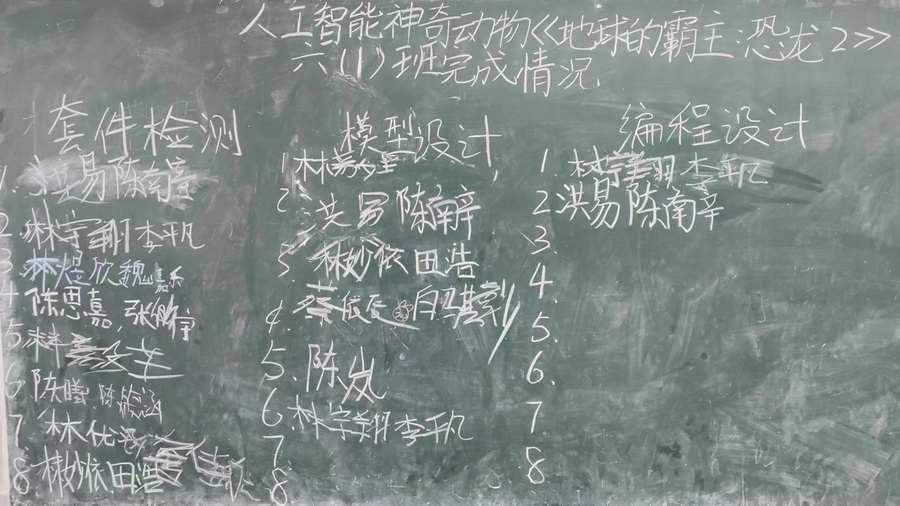 人工智能神奇动物《地球的霸主:恐龙2》
六(1)班完成情况
套件检测
1. 洪易陈南辛
2 林宇翔李平凡
3 林煜欣魏嘉乐
4 陈思嘉,张
5
6 陈曦 陈
7 林优
8 林妙依田浩
模型设计
1. 林
2. 洪易陈南辛
3 林妙依田浩
4. 蔡依辰
5. 陈岚
6. 林宇翔李平凡
7
8.
编程设计
1. 林宇翔李平凡
2 洪易陈南辛
3.
4.
5.
6.
7
8